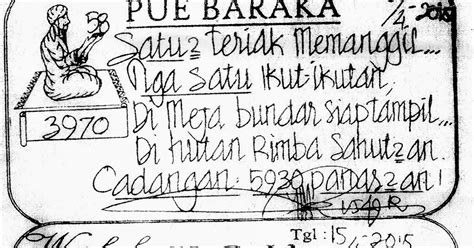 PUE BARAKA
/4-2015
58
3970
Satu2 teriak Memanggil...
Nga satu Ikut-ikutan,
Di Meja bundar siap tampil...
Di hutan Rimba Sahut2an.
Cadangan: 5930 panas2an!
Tgl: 15/4-2015